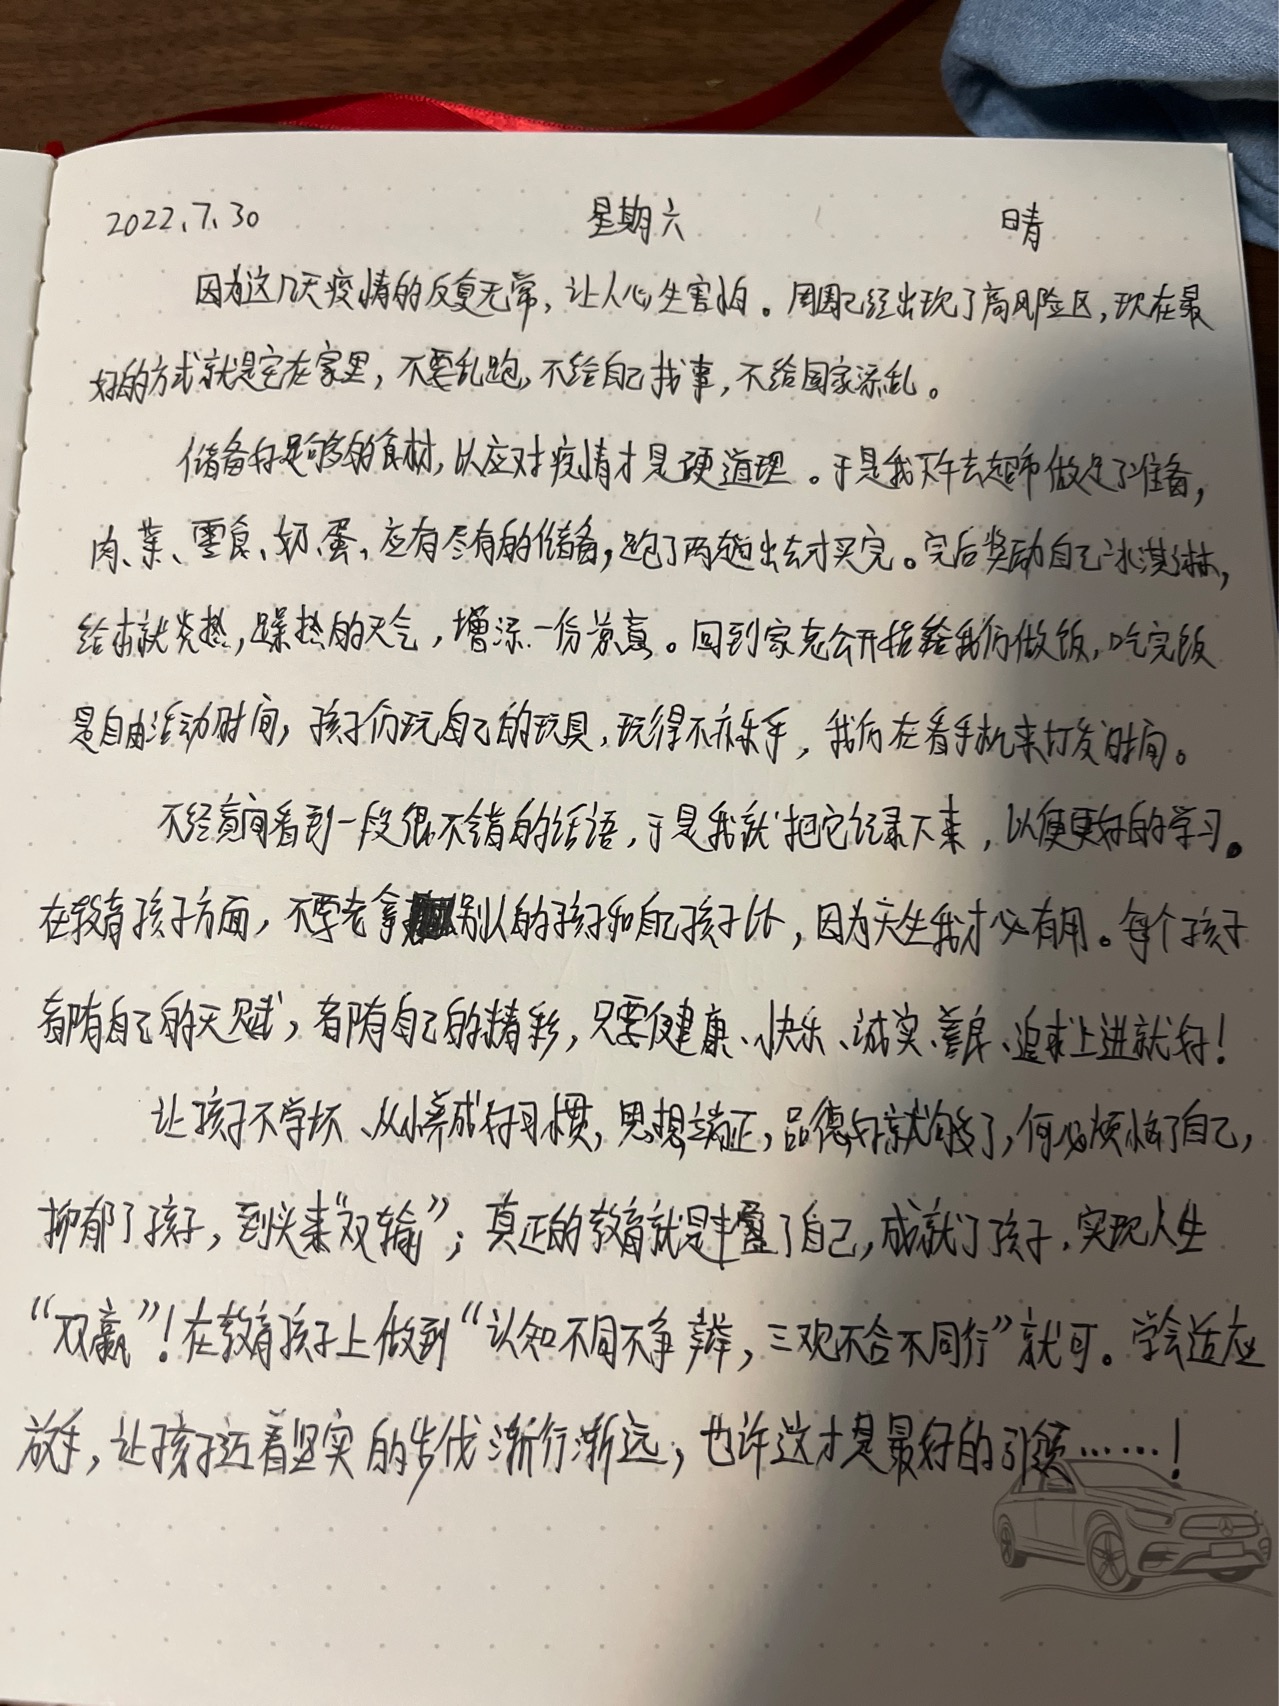 2022.7.30 星期六 晴
因为这几天疫情的反复无常，让人心生害怕。周围已经出现了高风险区，现在最
好的方式就是宅在家里，不要乱跑，不给自己找事，不给国家添乱。
储备好足够的食材，以应对疫情才是硬道理。于是我下午去超市做足了准备，
肉、菜、零食、奶、蛋、应有尽有的储备，跑了两趟出去才买完。完后奖励自己冰淇淋，
给本就炎热，躁热的天气，增添一份凉意。回到家老公开始给我们做饭，吃完饭
是自由活动时间，孩子们玩自己的玩具，玩得不亦乐乎，我们在看手机来打发时间。
不经意间看到一段很不错的话语，于是我就把它记录下来，以便更好的学习。
在教育孩子方面，不要老拿别人的孩子和自己孩子比，因为天生我才必有用。每个孩子
都有自己的天赋，都有自己的精彩，只要健康、快乐、诚实、善良、追求上进就好！
让孩子不学坏、从小养成好习惯，思想端正，品德好就够了，何必烦恼了自己，
抑郁了孩子，到头来“双输”；真正的教育就是丰盈了自己，成就了孩子，实现人生
“双赢”！在教育孩子上做到“认知不同不争辩，三观不合不同行”就可。学会适应
放手，让孩子迈着坚实的步伐渐行渐远，也许这才是最好的引领……！